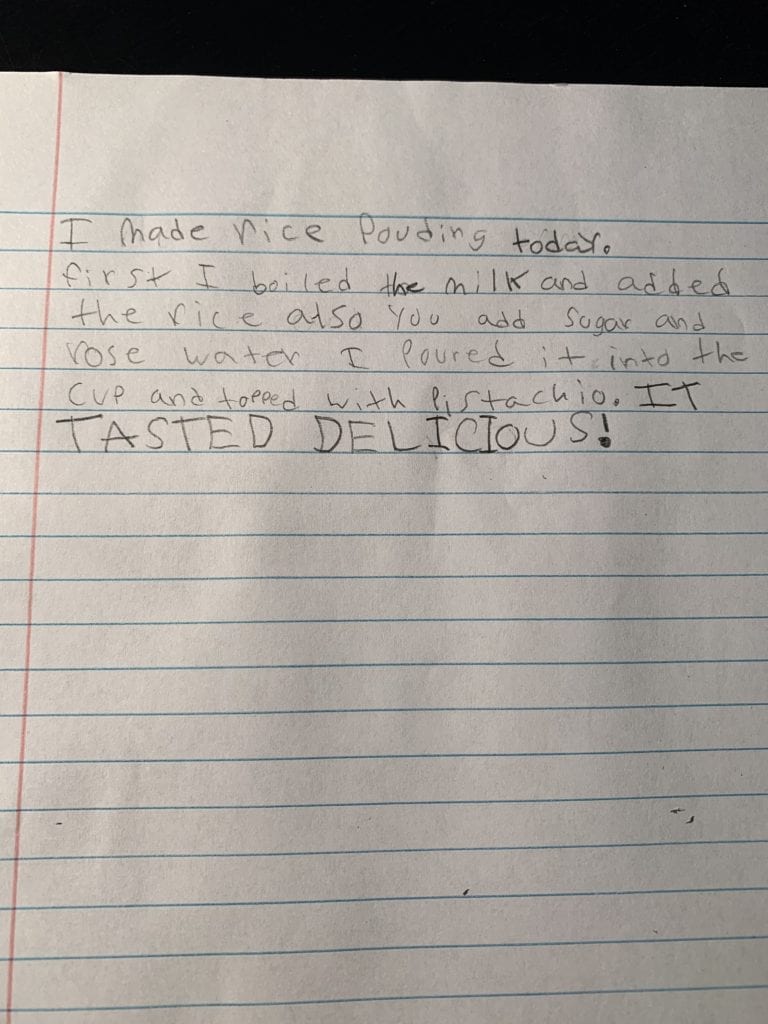 I made rice Pouding today.
first I boiled the milk and added
the rice also you add sugar and
rose water I Poured it into the
cup and topped with Pistachio. IT
TASTED DELICIOUS!